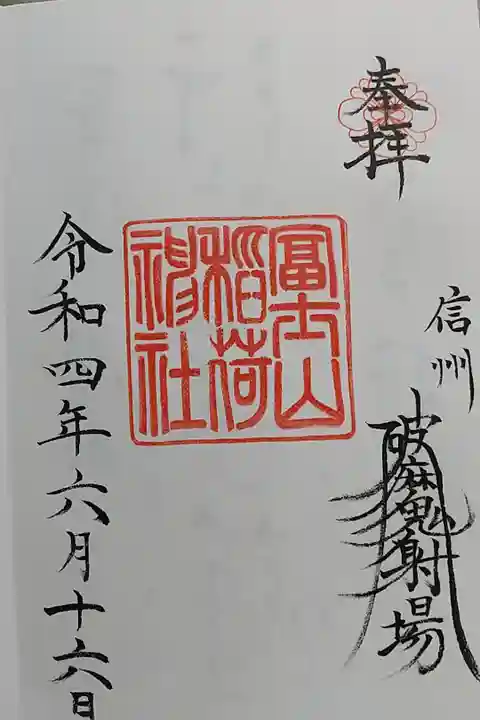 奉拝
信州
破魔鬼射場
冨士山
稲荷
神社
令和四年六月十六日